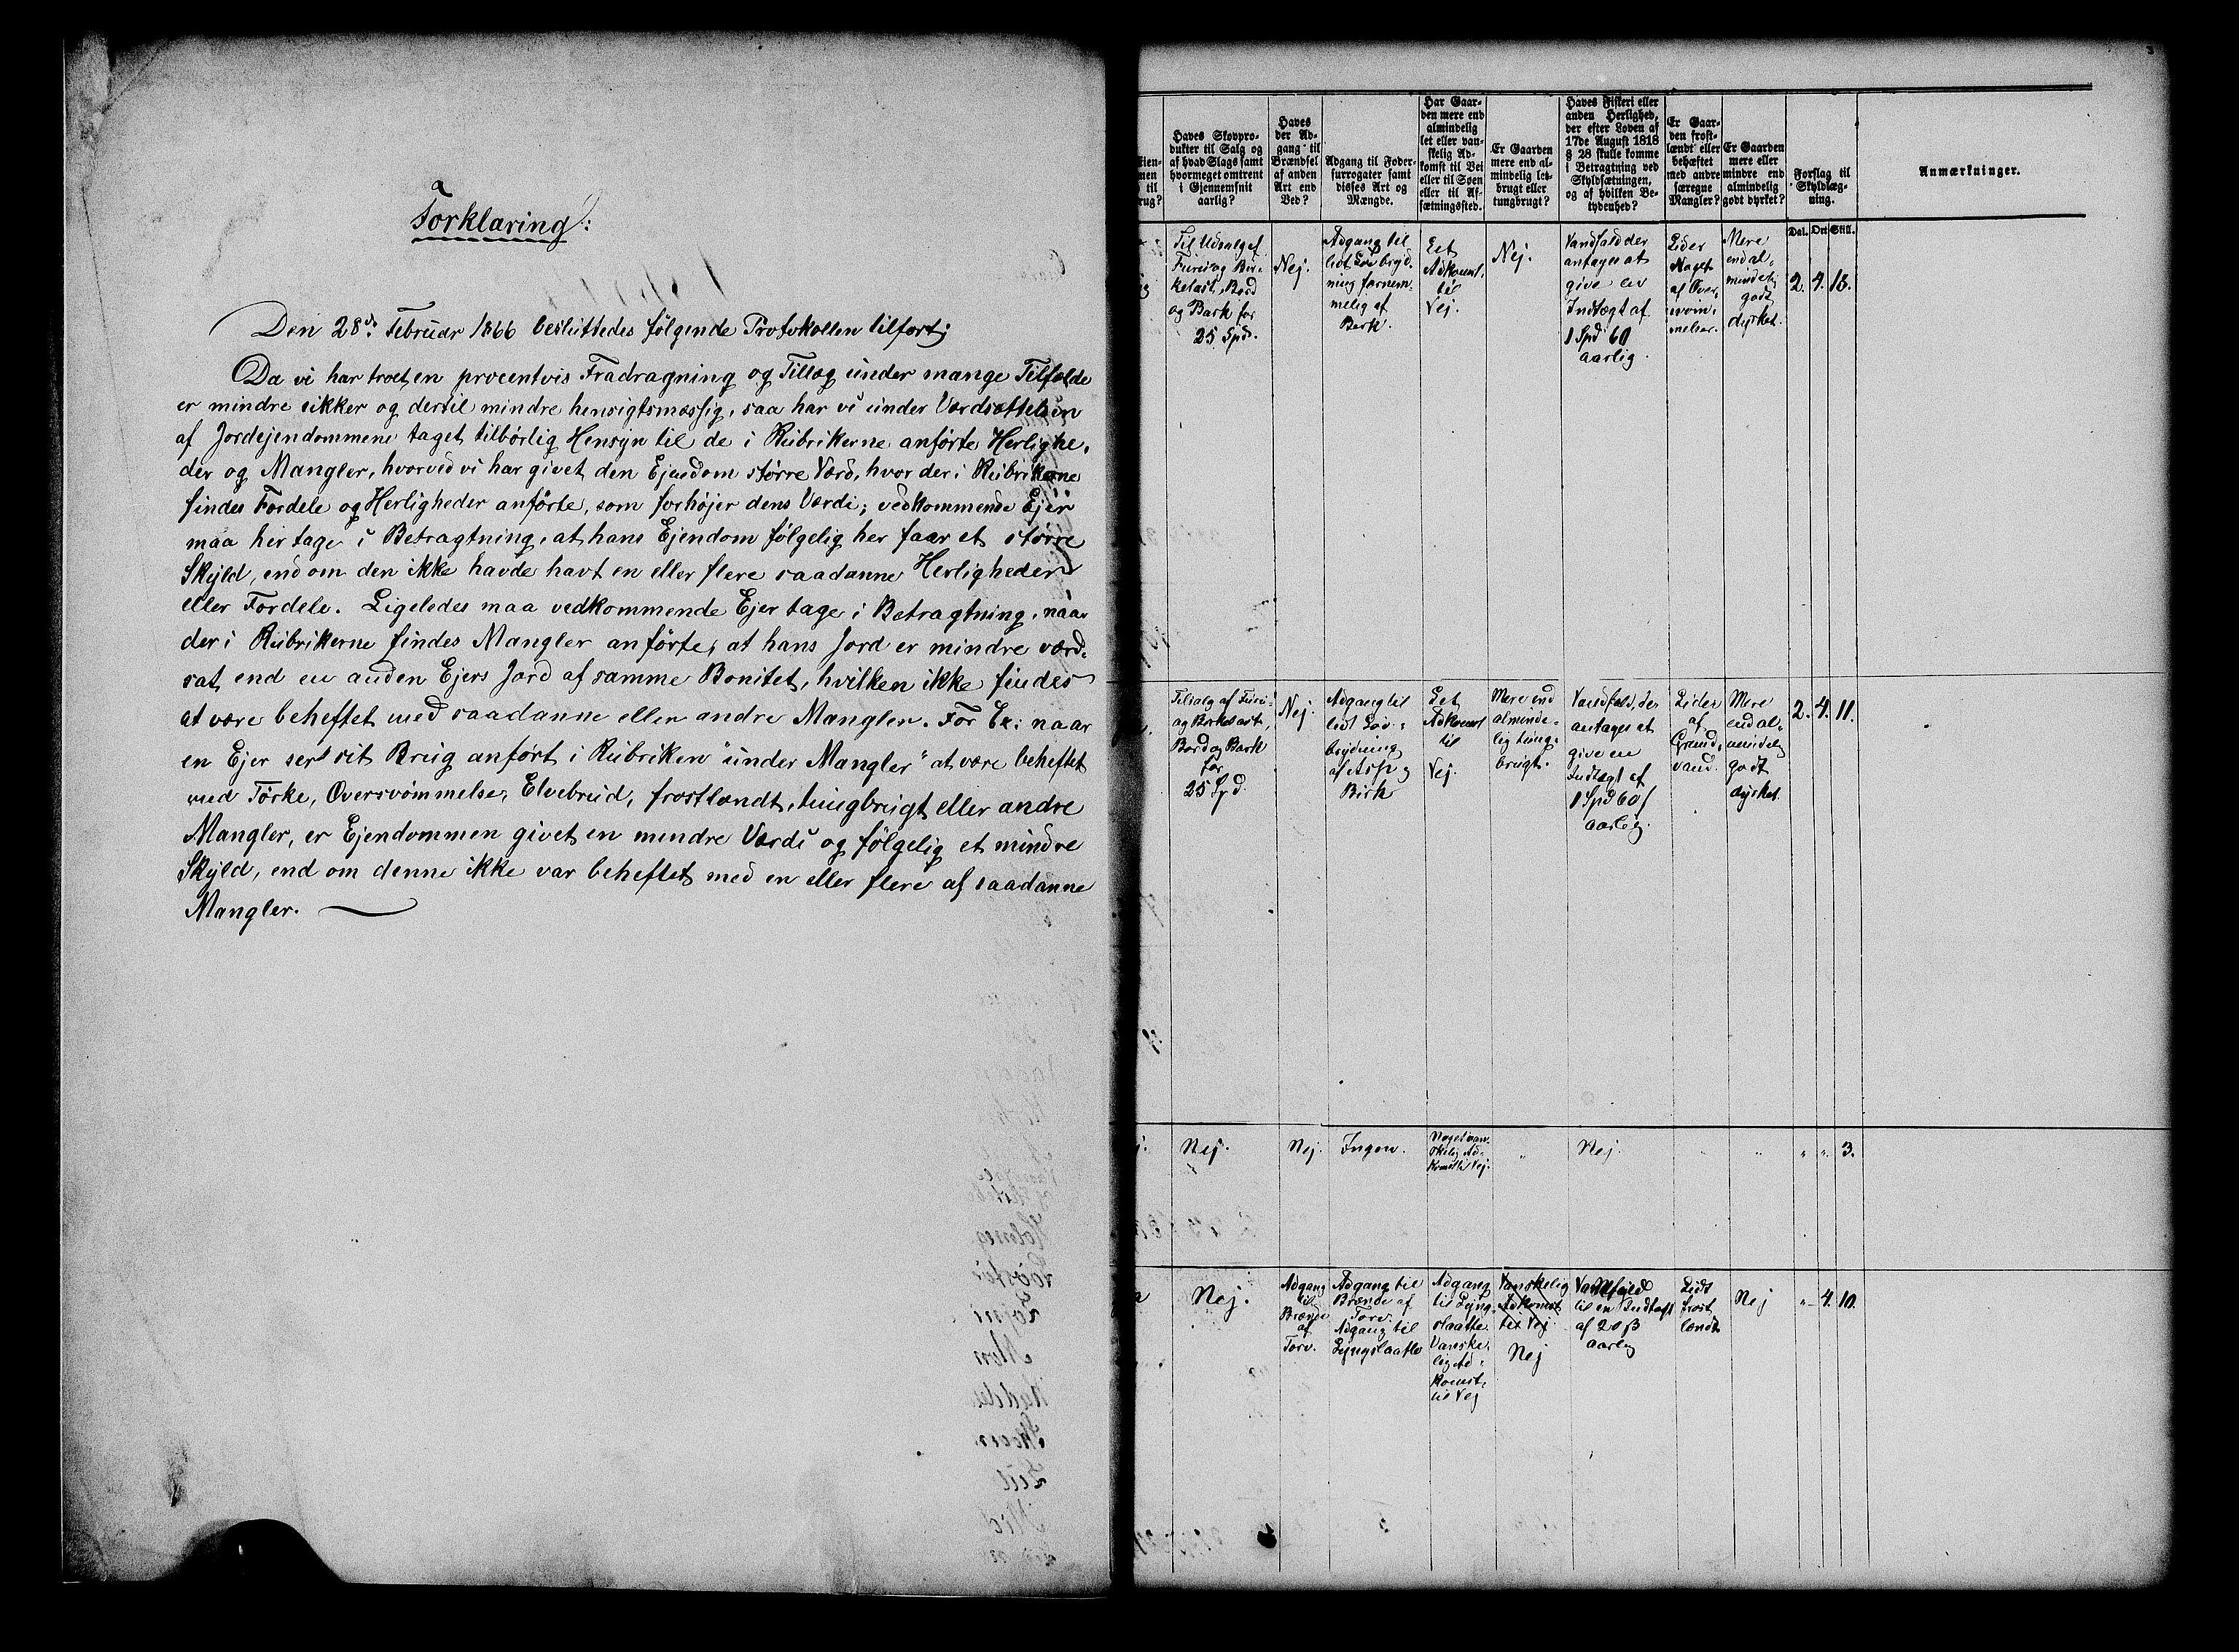 Forklaring:
Den 28de Februar 1866 besluttedes følgende Protokollen tilført:
Da vi har troet en procentvis Fradragning og Tillæg under mange Tilfælde
er mindre sikker og dertil mindre hensigtsmæssig, saa har vi under Værdsættelsen
af Jordejendommene taget tilbørlig Hensyn til de i Rubrikerne anførte Herlighe-
der og Mangler, hvorved vi har givet den Ejendom større Værd, hvor der i Rubrikerne
findes Fordele og Herligheder anførte, som forhøjer dens Værdi; vedkommende Ejer
maa her tage i Betragtning, at hans Ejendom følgelig her faar et større
Skyld, end om den ikke havde havt en eller flere saadanne Herligheder
eller Fordele. Ligeledes maa vedkommende Ejer tage i Betragtning, naar
der i Rubrikerne findes Mangler anførte, at hans Jord er mindre værd-
sat end en anden Ejers Jord af samme Bonitet, hvilken ikke findes
at være beheftet med saadanne eller andre Mangler. For Ex: naar
en Ejer ser sit Brug anført i Rubriken "under Mangler" at være beheftet
med Tørke, Oversvømmelse, Elvebrud, frostlændt, tungbrugt eller andre
Mangler, er Ejendommen givet en mindre Værdi og følgelig et mindre
Skyld, end om denne ikke var beheftet med en eller flere af saadanne
Mangler.
Haves Skovpro-
dukter til Salg og
af hvad Slags samt
hvormeget omtrent
i Gjennemsnit
aarlig?
Haves
der Ad-
gang til
Brændsel
af anden
Art end
Ved?
Adgang til Foder-
surrogater samt
disses Art og
Mængde.
Har Gaar-
den mere end
almindelig
let eller van-
skelig Ad-
komst til Vei
eller til Søen
eller til Af-
sætningssted.
Er Gaarden
mere end al-
mindelig let-
brugt eller
tungbrugt?
Haves Fiskeri eller
anden Herlighed,
der efter Loven af
17de August 1818
§ 28 skulle komme
i Betragtning ved
Skyldsætningen,
og af hvilken Be-
tydenhed?
Er Gaar-
den frost-
lændt eller
behæftet
med andre
særegne
Mangler?
Er Gaarden
mere eller
mindre end
almindelig
godt dyrket?
Forslag til
Skyldlæg-
ning.
Anmærkninger.
Dal. Ort Skill.
Til Udsalg af
Furu og Bir-
kelast, Bord
og Bark for
25 Spd.
Nej.
Adgang til
lidt Løvbryd-
ning fornem-
melig af
Birk.
Let
Adkomst
til
Vej.
Nej.
Vandfald der
antages at
give en
Indtægt af
1 Spd 60
aarlig.
Lider
Noget
af Over-
svøm-
melser.
Mere
end al-
mindelig
godt
dyrket.
2. 4. 18.
Tilsalg af Furu-
og Birkelast,
Bord og Bark
for
25 Spd.
Nej.
Adgang til
lidt Løv-
brydning
af Asp og
Birk
Let
Adkomst
til
Vej.
Mere end
alminde-
lig tung-
brugt.
Vandfald, der
antages at
give en
Indtægt af
1 Spd 60 ß
aarlig.
Lider
af
Grund-
vand.
Mere
end al-
mindelig
godt
dyrket.
2. 4. 11.
Nej.
Nej.
Ingen.
Noget van-
skelig Ad-
komst til Vej.
"
Nej.
"
"
" " 3.
Nej.
Adgang
til
Brænde
af
Torv.
Adgang til
Brænde af
Torv.
Adgang til
Lyngslaatte
Adgang
til Lyng-
slaatte.
Vanske-
lig Ad-
komst
til Vej
Vanskelig
Adkomst
til Vej
Nej
Vandfald
til en Indtægt
af 20 ß
aarlig
Lidt
frost
lændt
Nej
" 4. 10.